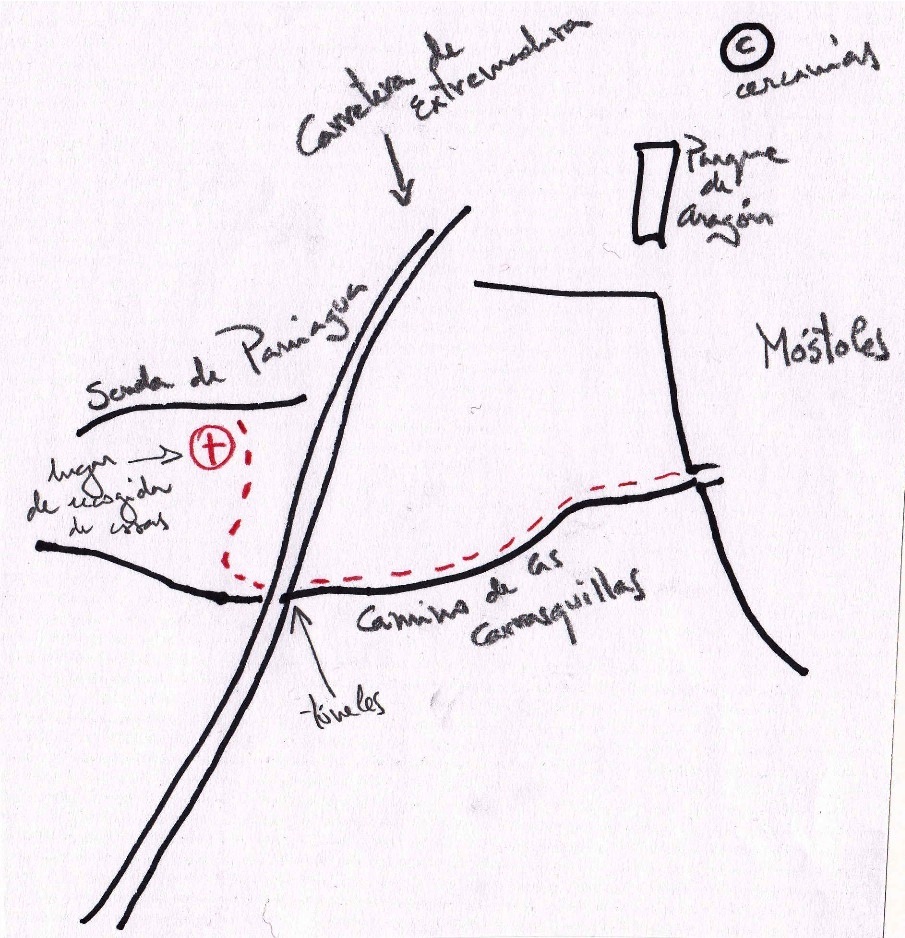 C
cercanías
Carretera de
Extremadura
Parque
de
Aragón
Móstoles
Senda de Paniagua
lugar
de recogida
de cosas
Camino de las
Carrasquillas
túneles